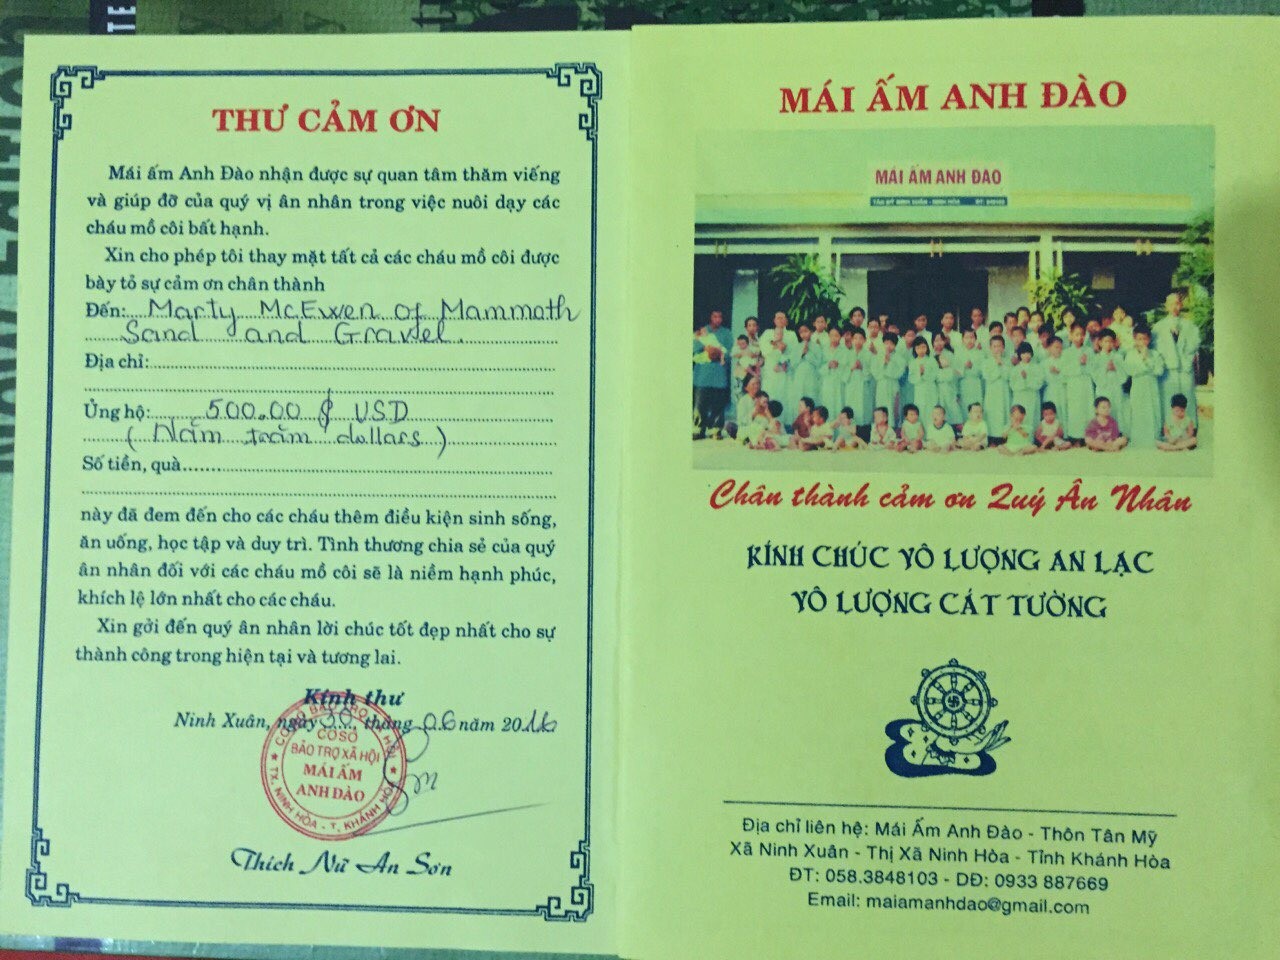 TE
THƯ CẢM ƠN
Mái ấm Anh Đào nhận được sự quan tâm thăm viếng
và giúp đỡ của quý vị ân nhân trong việc nuôi dạy các
cháu mồ côi bất hạnh.
Xin cho phép tôi thay mặt tất cả các cháu mồ côi được
bày tỏ sự cảm ơn chân thành
Đến: Marty McEwen of Mammoth
Sand and Gravel.
Địa chỉ:
Ủng hộ: 500.00 $ USD
(Năm trăm dollars)
Số tiền, quà
này đã đem đến cho các cháu thêm điều kiện sinh sống,
ăn uống, học tập và duy trì. Tình thương chia sẻ của quý
ân nhân đối với các cháu mồ côi sẽ là niềm hạnh phúc,
khích lệ lớn nhất cho các cháu.
Xin gởi đến quý ân nhân lời chúc tốt đẹp nhất cho sự
thành công trong hiện tại và tương lai.
Kính thư
Ninh Xuân, ngày 30, tháng 06 năm 2016
CƠ SỞ BẢO TRỢ XÃ HỘI
CƠ SỞ
BẢO TRỢ XÃ HỘI
MÁI ẤM
ANH ĐÀO
TX. NINH HÒA - T. KHÁNH HÒA
Thích Nữ An Sơn
MÁI ẤM ANH ĐÀO
MÁI ẤM ANH ĐÀO
Chân thành cảm ơn Quý Ân Nhân
KÍNH CHÚC VÔ LƯỢNG AN LẠC
VÔ LƯỢNG CÁT TƯỜNG
Địa chỉ liên hệ: Mái Ấm Anh Đào - Thôn Tân Mỹ
Xã Ninh Xuân - Thị Xã Ninh Hòa - Tỉnh Khánh Hòa
ĐT: 058.3848103 - DĐ: 0933 887669
Email: maiamanhdao@gmail.com